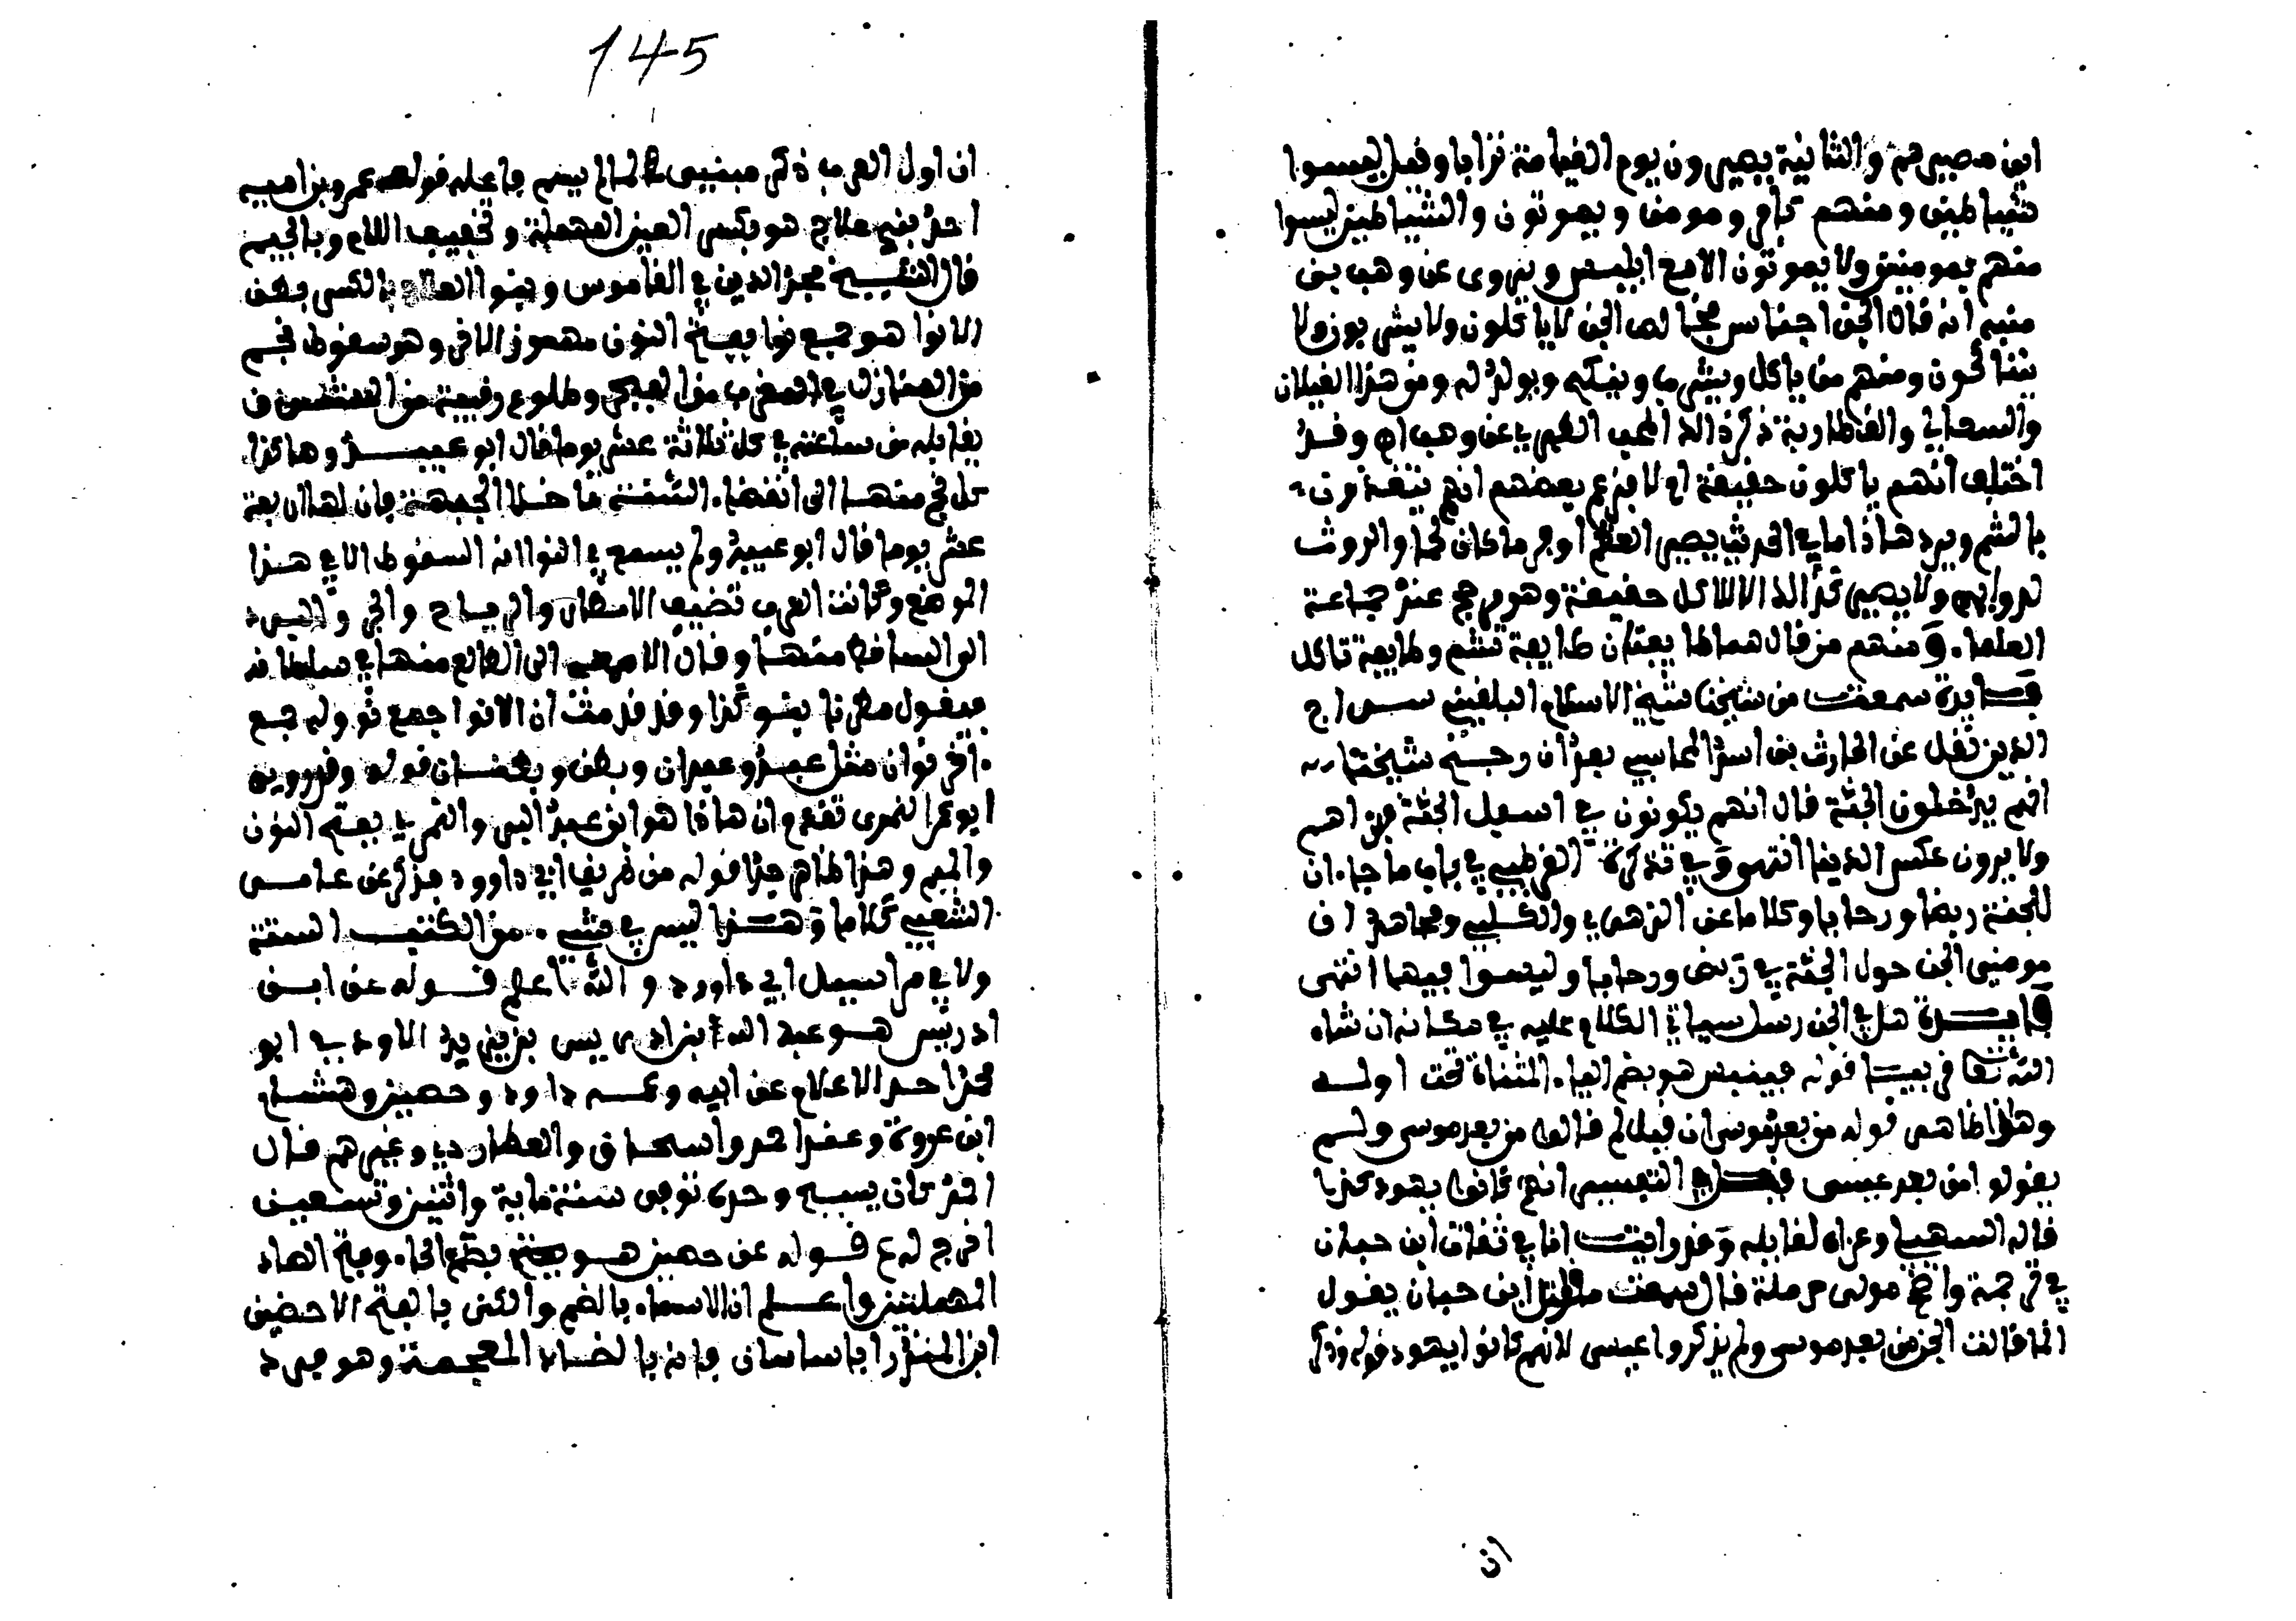 اين مصيرهم والثانية يصيرون يوم القيامة ترابا وقيل ليسوا
شياطين ومنهم كافر ومومن ويموتون والشياطين ليسوا
منهم بمومنين ولا يموتون الا مع ابليس ويروى عن وهب بن
منبه انه قال الجن اجناس فخالص الجن لا ياكلون ولا يشربون ولا
يتناكحون ومنهم من ياكل ويشرب وينكح ويولد له ومن هذا الغيلان
والسعالي والقطاربة ذكر ذالك المحب الطبري عن وهب اه وقد
اختلف انهم ياكلون حقيقة او لا فزعم بعضهم انهم يتغذون
بالشم ويرد هاذا ما في الحديث يصير العظم اوفر ما كان لحما والروث
لدوابهم ولا يصير كذالك الا للاكل حقيقة وهو مرجح عند جماعة
العلماء ومنهم من قال هما طايفتان طايفة تشم وطايفة تاكل
فايدة سمعت من شيخنا شيخ الاسلام البلقيني سراج
الدين نقل عن الحارث بن اسد المحاسبي بعد ان رجح شيخنا
انهم يدخلون الجنة قال انهم يكونون في اسفل الجنة نراهم
ولا يرون عكس الدنيا انتهى وفي تذكرة القرطبي في باب ما جاء ان
للجنة ربضا ورحابا وكلاما عن الزهري والكلبي ومجاهد ان
مومني الجن حول الجنة في ربض ورحاب وليسوا فيها انتهى
فايدة هل في الجن رسل سياتي الكلام عليه في مكانه ان شاء
الله تعالى قوله فيئس هو بضم الياء المثناة تحت اوله
وهاذا ظاهر قوله من بعد موسى ان قيل لم قالوا من بعد موسى ولم
يقولوا من بعد عيسى التفسير انهم كانوا يهود كذا
قاله السهيلي وعزاه لقايله وقد رايت انا في ثقات ابن حبان
في ترجمة واضح مولى حرملة قال سمعت مقاتل ابن حبان يقول
انما قالت الجن من بعد موسى ولم يذكروا عيسى لانهم كانوا يهود قوله وذكر
ان
145
ان اول العرب ذكر فاعله قوله عمرو بن امية
احد بني علاج هو بكسر العين المهملة وتخفيف اللام وبالجيم
قال الشيخ مجد الدين في القاموس وبنوا العلاج بالكسر بطن
الانوا هو جمع نوا بفتح النون مهموز الاخر وهو سقوط نجم
من المنازل في المغرب من الفجر وطلوع رقيبه من المشرق
يقابله من ساعته في كل ثلاثة عشر يوما قال ابو عبيد وهاكذا
كل نجم منها الى انقضاء السنة ما خلا الجبهة فان لها اربعة
عشر يوما قال ابو عبيد ولم يسمع في النوا انه السقوط الا في هذا
الموضع وكانت العرب تضيف الامطار والرياح والحر والبرد
الى الساقط منها وقال الاصمعي الى الطالع منها في سلطانه
فيقول مطرنا بنوء كذا وقد قدمت ان الانوا جمع نوء وله جمع
اخر نوان مثل عبد وعبدان وبطن وبطنان قوله وقد روى
ابو عمر النمري تقدم ان هاذا هو ابن عبد البر والنمري بفتح النون
والميم وهذا ظاهر جدا قوله من طريق ابي داوود فذكر عن عامر
الشعبي كلاما وهذا ليس في شيء من الكتب الستة
ولا في مراسيل ابي داوود والله اعلم قوله عن ابن
ادريس هو عبد الله ابن ادريس بن يزيد الاودي ابو
محمد احد الاعلام عن ابيه وعمه داود وحصين وهشام
ابن عروة وعنه احمد واسحاق والعطاردي وغيرهم قال
احمد كان نسيج وحده توفي سنة ماية واثنين وتسعين
اخرج له ع قوله عن حصين هو بضم الحاء وفتح الصاد
المهملتين واعلم ان الاسماء بالضم والكنى بالفتح الا حضين
ابن المنذر ابا ساسان فانه بالضاد المعجمة وهو فرد